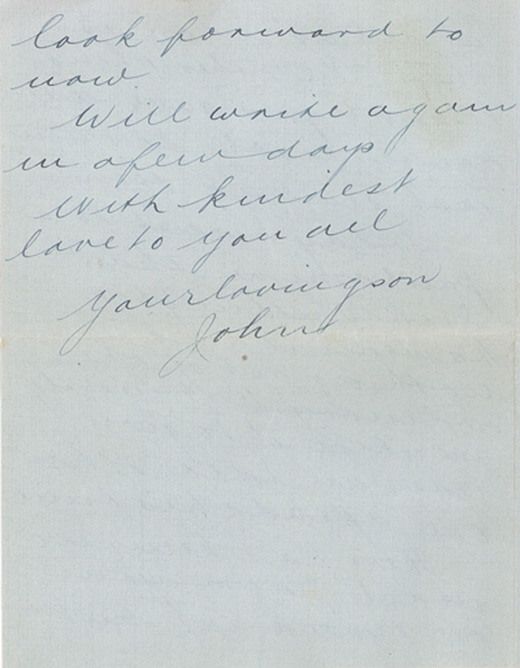 look forward to
now
Will write again
in a few days
With kindest
love to you all
Your loving son
John